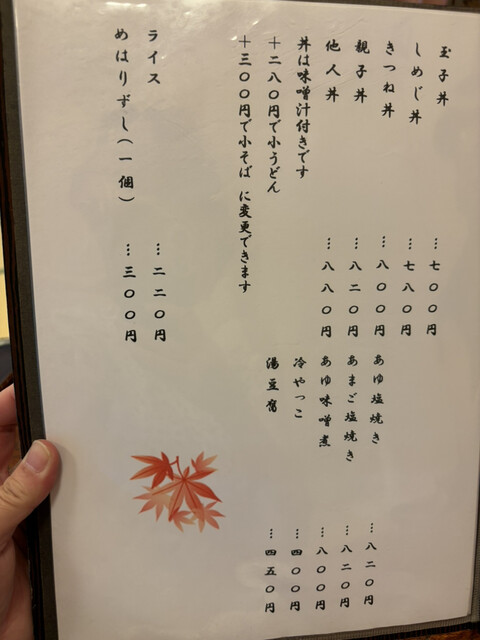 玉子丼 …七〇〇円
しめじ丼 …七八〇円
きつね丼 …八〇〇円
親子丼 …八二〇円
他人丼 …八八〇円
丼は味噌汁付きです
＋二八〇円で小うどん
＋三〇〇円で小そば に変更できます
ライス …二二〇円
めはりずし（一個） …三〇〇円
あゆ塩焼き …八二〇円
あまご塩焼き …八二〇円
あゆ味噌煮 …八〇〇円
冷やっこ …四〇〇円
湯豆腐 …四五〇円